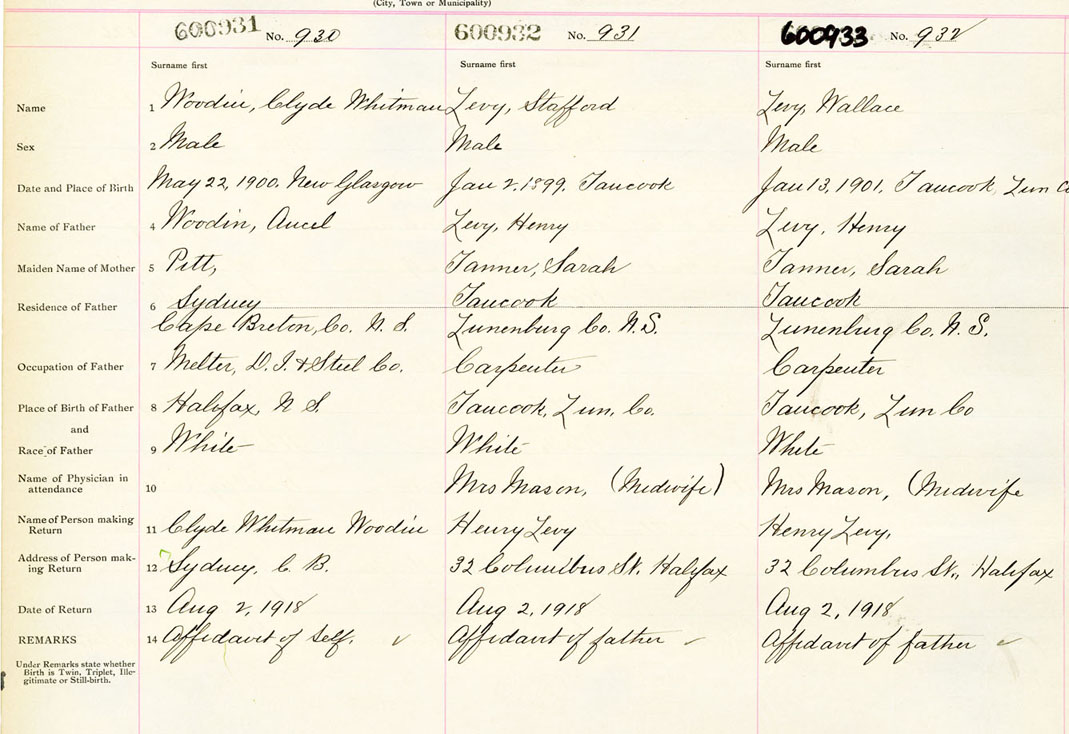 (City, Town or Municipality)
600931 No. 930 600932 No. 931 600933 No. 932
Surname first Surname first Surname first
Name 1 Woodin, Clyde Whitman Levy, Stafford Levy, Wallace
Sex 2 Male Male Male
Date and Place of Birth May 22, 1900. New Glasgow Jan 2. 1899. Tancook Jan 13, 1901, Tancook, Lun Co
Name of Father 4 Woodin, Ancel Levy, Henry Levy, Henry
Maiden Name of Mother 5 Pitt, Tanner, Sarah Tanner, Sarah
Residence of Father 6 Sydney Tancook Tancook
Cape Breton, Co. N. S. Lunenburg Co. N.S. Lunenburg Co. N. S.
Occupation of Father 7 Melter, D. I. & Steel Co. Carpenter Carpenter
Place of Birth of Father 8 Halifax, N S. Tancook, Lun. Co. Tancook, Lun Co
and
Race of Father 9 White White White
Name of Physician in
attendance 10 Mrs Mason, (Midwife) Mrs Mason, (Midwife
Name of Person making
Return 11 Clyde Whitman Woodin Henry Levy Henry Levy,
Address of Person mak-
ing Return 12 Sydney, C. B. 32 Columbus St. Halifax 32 Columbus St., Halifax
Date of Return 13 Aug 2, 1918 Aug 2, 1918 Aug 2, 1918
REMARKS 14 Affidavit of self. Affidavit of father Affidavit of father
Under Remarks state whether
Birth is Twin, Triplet, Ille-
gitimate or Still-birth.